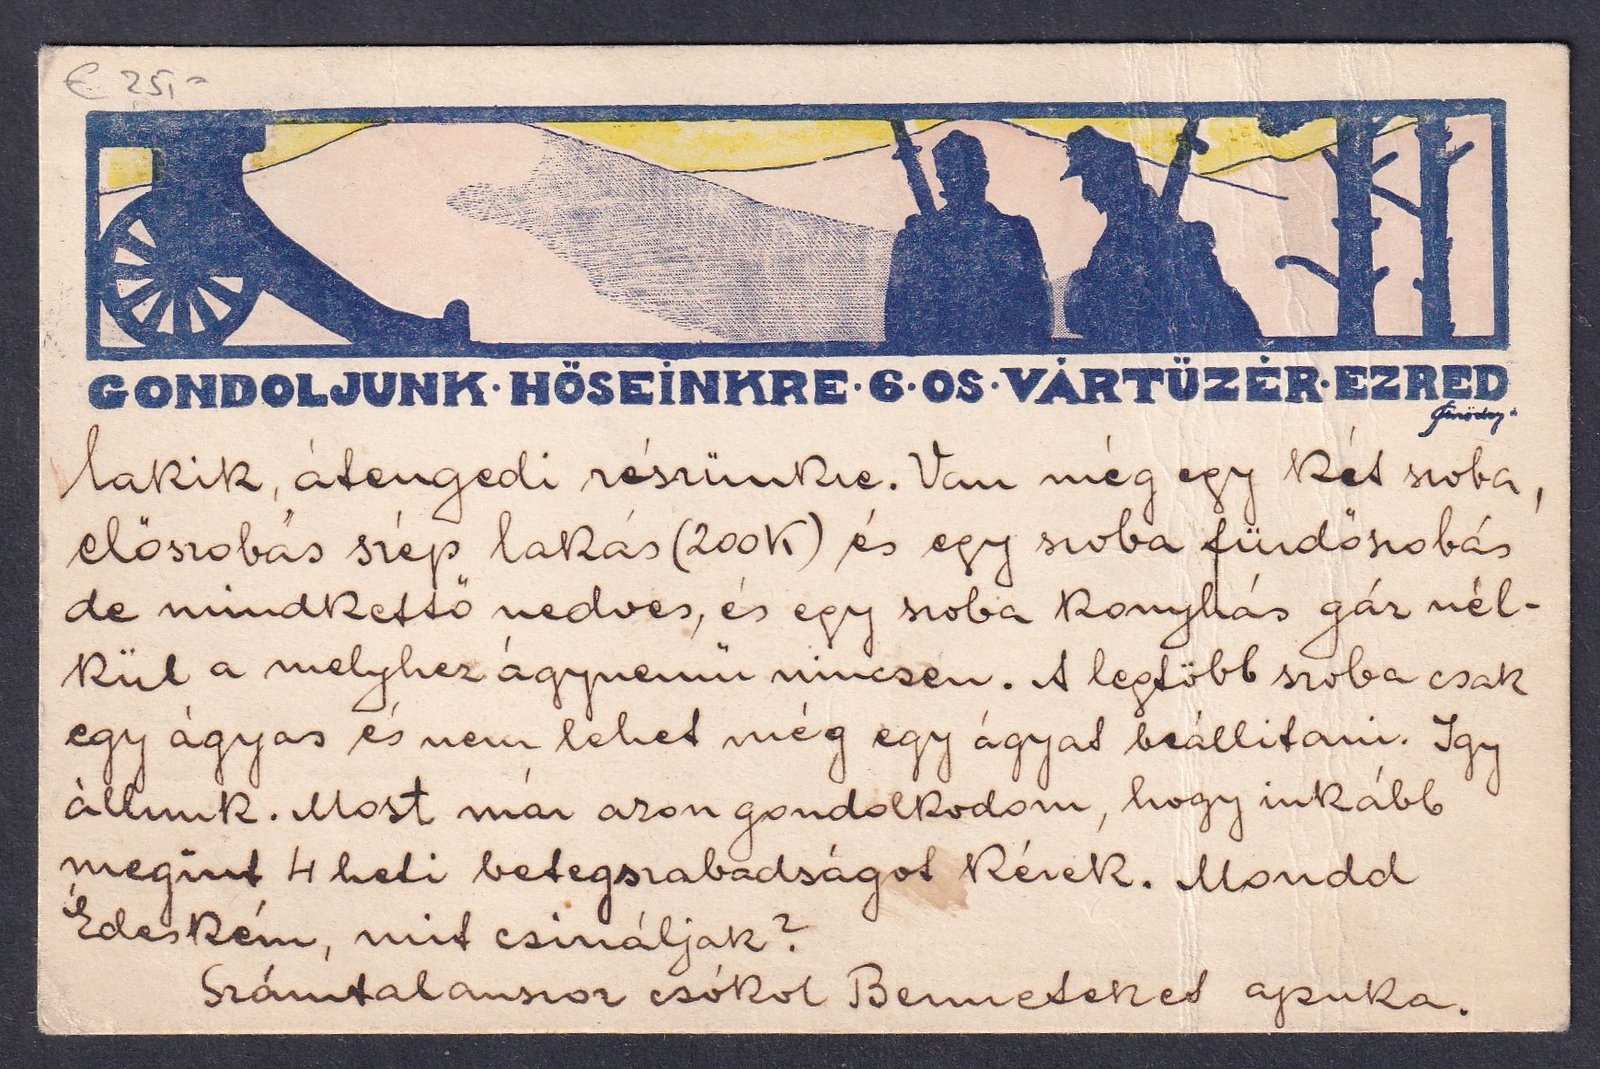 € 25,-
GONDOLJUNK · HŐSEINKRE · 6 · OS · VÁRTÜZÉR · EZRED
lakik, átengedi részünkre. Van még egy két szoba,
előszobás szép lakás (200K) és egy szoba fürdőszobás
de mindkettő nedves, és egy szoba konyhás gáz nél-
kül a melyhez ágynemü nincsen. A legtöbb szoba csak
egy ágyas és nem lehet még egy ágyat beállitani. Igy
állunk. Most már azon gondolkodom, hogy inkább
megint 4 heti betegszabadságot kérek. Mondd
Édeském, mit csináljak?
Számtalanszor csókol Benneteket apuka.